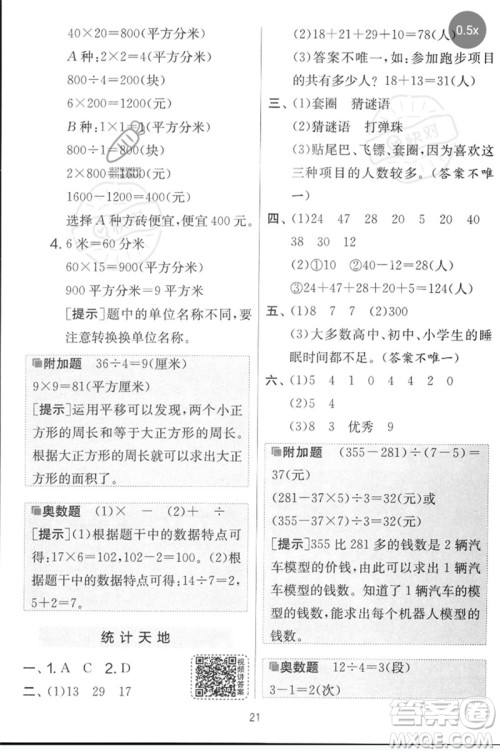 40×20=800(平方分米)
A 种:2×2=4(平方分米)
800÷4=200(块)
6×200=1200(元)
B 种:1×1=1(平方分米)
800÷1=800(块)
2×800=1600(元)
1600-1200=400(元)
选择 A 种方砖便宜,便宜 400 元。
4. 6 米=60 分米
60×15=900(平方分米)
900 平方分米=9(平方米)
[提示]题中的单位名称不同,要
注意转换换单位名称。
附加题 36÷4=9(厘米)
9×9=81(平方厘米)
[提示]运用平移可以发现,两个小正
方形的周长等于大正方形的周长,根
据大正方形的周长可以求出大正方
形的面积了。
奥数题 (1)× - (2)+ ÷
[提示](1)根据题干中的数据特点可
得:17×6=102,102-2=100。
(2)根据题干中的数据特点可得:14÷7=2,
5+2=7。
统计天地
一、1. A C 2. D
二、(1)13 29 17
视频讲答案
(2)18+21+29+13+17=98(人)
(3)答案不唯一,如:参加跑步项目
的共有多少人? 18+13=31(人)
三、(1)套圈 猜谜语
(2)猜谜语 打弹珠
(3)贴尾巴、飞镖、套圈,因为喜欢这
三种项目的人数较多。(答案不唯一)
四、(1)24 47 28 20 5 40
38 30 13
(2)①90 ②40-28=12(人)
③24+47+28+20+5=124(人)
五、(1)8 7 7 (2)300
(3)大多数高中、初中、小学生的睡
眠时间都不足。(答案不唯一)
六、(1)5 4 1 0 4 4 2 0
(2)5 4
(3)9 8 优秀 9
附加题 (355-281)÷(7-5)=
37(元)
(281-37×5)÷3=32(元)或
(355-37×7)÷3=32(元)
[提示]355 比 281 多的钱数是 2 辆汽
车模型的价钱,由此可以求出 1 辆汽
车模型的钱数。知道了 1 辆汽车模型
的钱数,就可以求出每个机器人模型
的钱数。
奥数题 12÷4=3(段)
3-1=2(次)
21
0.5x